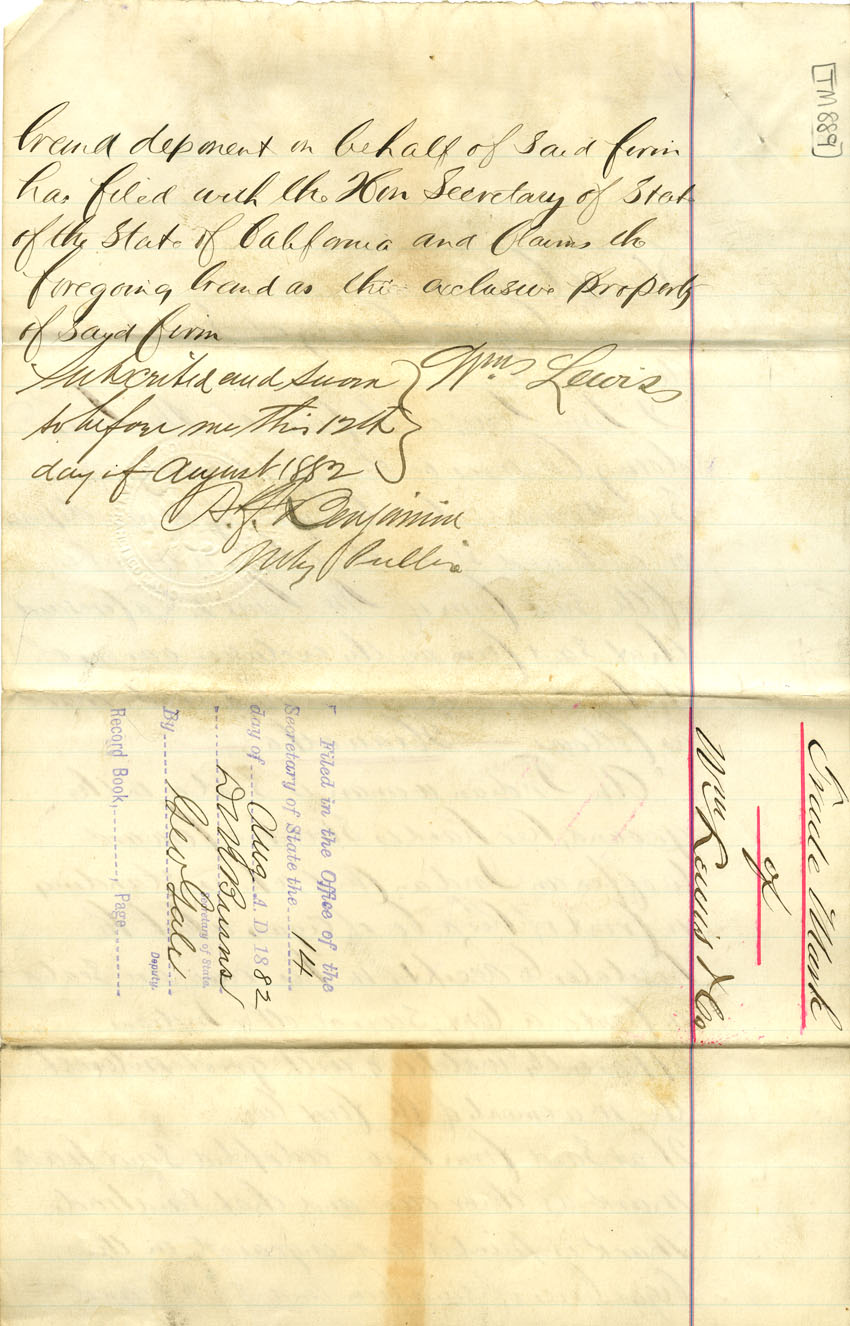 brand deponent on behalf of said firm
has filed with the Hon Secretary of State
of the State of California and Claims the
foregoing brand as the exclusive property
of said firm
Subscribed and sworn
to before me this 12th
day of August 1882
Wm Lewis
Benjamin
Noty Public
TM889
Trade Mark
of
Wm Lewis & Co
Filed in the Office of the
Secretary of State the 14
day of Aug A. D. 1882
D M Burns
Secretary of State.
By Geo Gale
Deputy.
Record Book, , Page